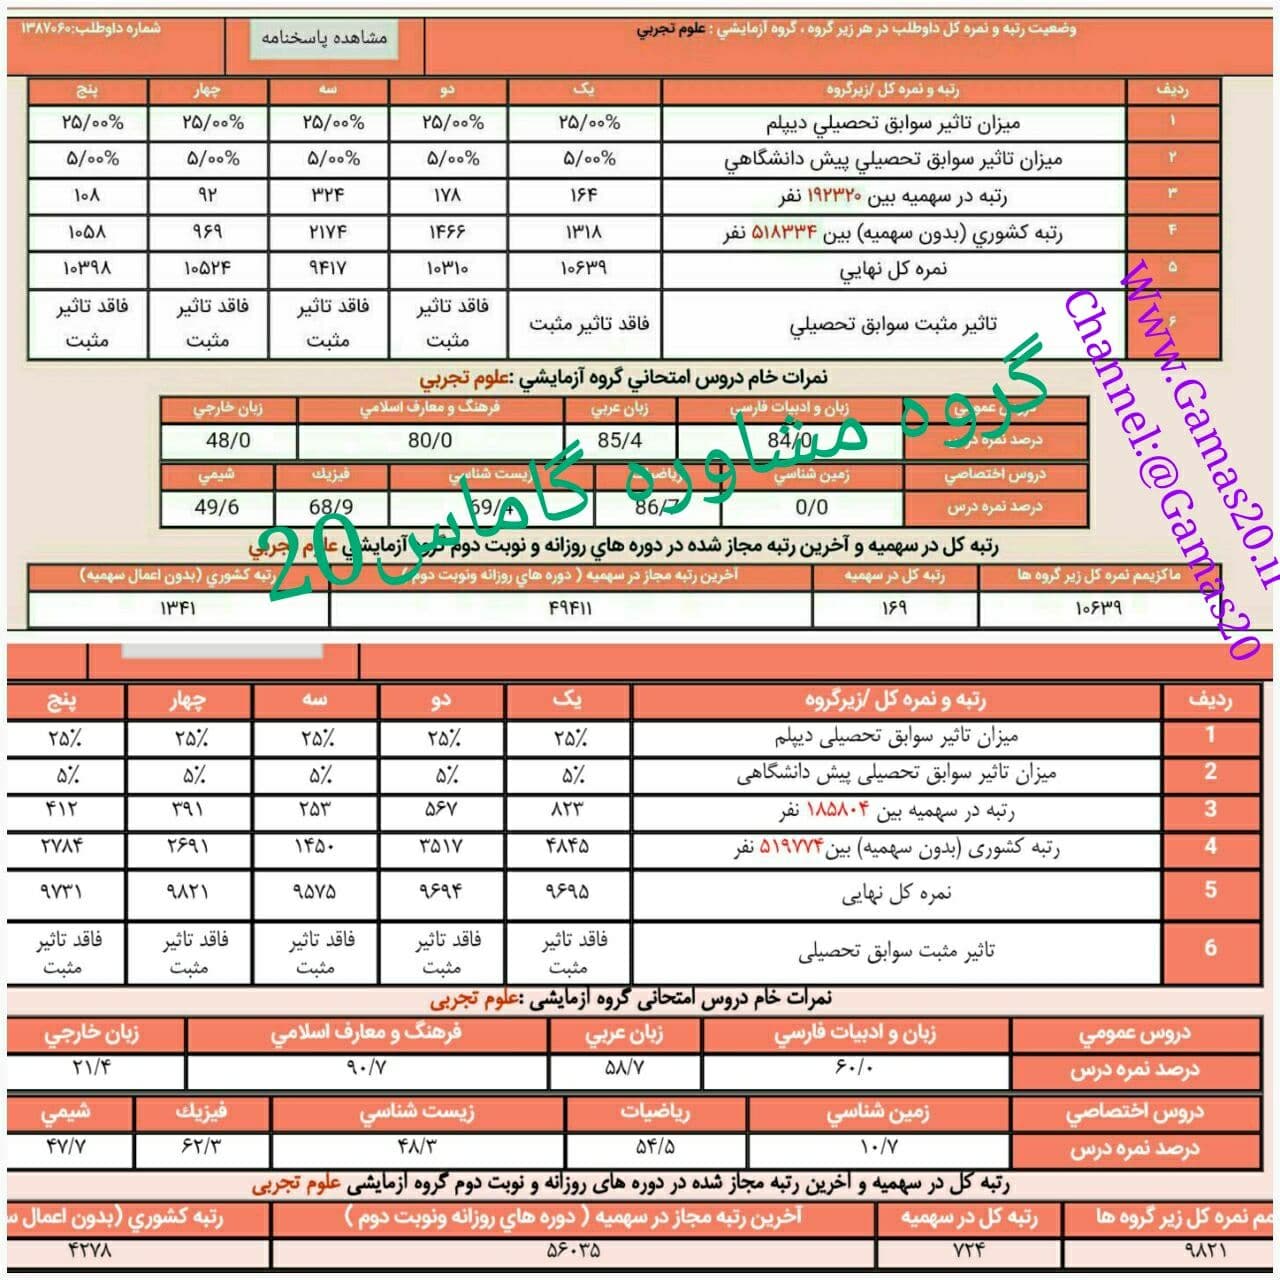 وضعیت رتبه و نمره کل داوطلب در هر زیر گروه ، گروه آزمایشي : علوم تجربي مشاهده پاسخنامه شماره داوطلب:۱۳۸۷۰۶۰
ردیف رتبه و نمره کل /زیرگروه یک دو سه چهار پنج
۱ میزان تاثیر سوابق تحصیلي دیپلم ۲۵/۰۰% ۲۵/۰۰% ۲۵/۰۰% ۲۵/۰۰% ۲۵/۰۰%
۲ میزان تاثیر سوابق تحصیلي پیش دانشگاهي ۵/۰۰% ۵/۰۰% ۵/۰۰% ۵/۰۰% ۵/۰۰%
۳ رتبه در سهمیه بین ۱۹۲۳۲۰ نفر ۱۶۴ ۱۷۸ ۳۲۴ ۹۲ ۱۰۸
۴ رتبه کشوري (بدون سهمیه) بین ۵۱۸۳۳۴ نفر ۱۳۱۸ ۱۴۶۶ ۲۱۷۴ ۹۶۹ ۱۰۵۸
۵ نمره کل نهایي ۱۰۶۳۹ ۱۰۳۱۰ ۹۴۱۷ ۱۰۵۲۴ ۱۰۳۹۸
۶ تاثیر مثبت سوابق تحصیلي فاقد تاثیر مثبت فاقد تاثیر مثبت فاقد تاثیر مثبت فاقد تاثیر مثبت فاقد تاثیر مثبت
نمرات خام دروس امتحاني گروه آزمایشي :علوم تجربي
دروس عمومي زبان و ادبیات فارسي زبان عربي فرهنگ و معارف اسلامي زبان خارجي
درصد نمره درس 84/0 85/4 80/0 48/0
دروس اختصاصي زمین شناسي ریاضیات زیست شناسي فیزیك شیمي
درصد نمره درس 0/0 86/7 69/4 68/9 49/6
رتبه کل در سهمیه و آخرین رتبه مجاز شده در دوره هاي روزانه و نوبت دوم گروه آزمایشي علوم تجربي
ماکزیمم نمره کل زیر گروه ها رتبه کل در سهمیه آخرین رتبه مجاز در سهمیه ( دوره هاي روزانه ونوبت دوم ) رتبه کشوري (بدون اعمال سهمیه)
۱۰۶۳۹ ۱۶۹ ۴۹۴۱۱ ۱۳۴۱
گروه مشاوره گاماس20
Www.Gamas20.ir
Channel:@Gamas20
ردیف رتبه و نمره کل /زیرگروه یک دو سه چهار پنج
1 میزان تاثیر سوابق تحصیلی دیپلم ۲۵٪ ۲۵٪ ۲۵٪ ۲۵٪ ۲۵٪
2 میزان تاثیر سوابق تحصیلی پیش دانشگاهی ۵٪ ۵٪ ۵٪ ۵٪ ۵٪
3 رتبه در سهمیه بین ۱۸۵۸۰۴ نفر ۸۲۳ ۵۶۷ ۲۵۳ ۳۹۱ ۴۱۲
4 رتبه کشوری (بدون سهمیه) بین۵۱۹۷۷۴ نفر ۴۸۴۵ ۳۵۱۷ ۱۴۵۰ ۲۶۹۱ ۲۷۸۴
5 نمره کل نهایی ۹۶۹۵ ۹۶۹۴ ۹۵۷۵ ۹۸۲۱ ۹۷۳۱
6 تاثیر مثبت سوابق تحصیلی فاقد تاثیر مثبت فاقد تاثیر مثبت فاقد تاثیر مثبت فاقد تاثیر مثبت فاقد تاثیر مثبت
نمرات خام دروس امتحانی گروه آزمایشی :علوم تجربی
دروس عمومي زبان و ادبیات فارسي زبان عربي فرهنگ و معارف اسلامي زبان خارجي
درصد نمره درس ۶۰/۰ ۵۸/۷ ۹۰/۷ ۲۱/۴
دروس اختصاصي زمین شناسي ریاضیات زیست شناسي فیزیك شیمي
درصد نمره درس ۱۰/۷ ۵۴/۵ ۴۸/۳ ۶۲/۳ ۴۷/۷
رتبه کل در سهمیه و آخرین رتبه مجاز شده در دوره های روزانه و نوبت دوم گروه آزمایشی علوم تجربی
نمره کل زیر گروه ها رتبه کل در سهمیه آخرین رتبه مجاز در سهمیه ( دوره هاي روزانه ونوبت دوم ) رتبه کشوري (بدون اعمال
۹۸۲۱ ۷۲۴ ۵۶۰۳۵ ۴۲۷۸